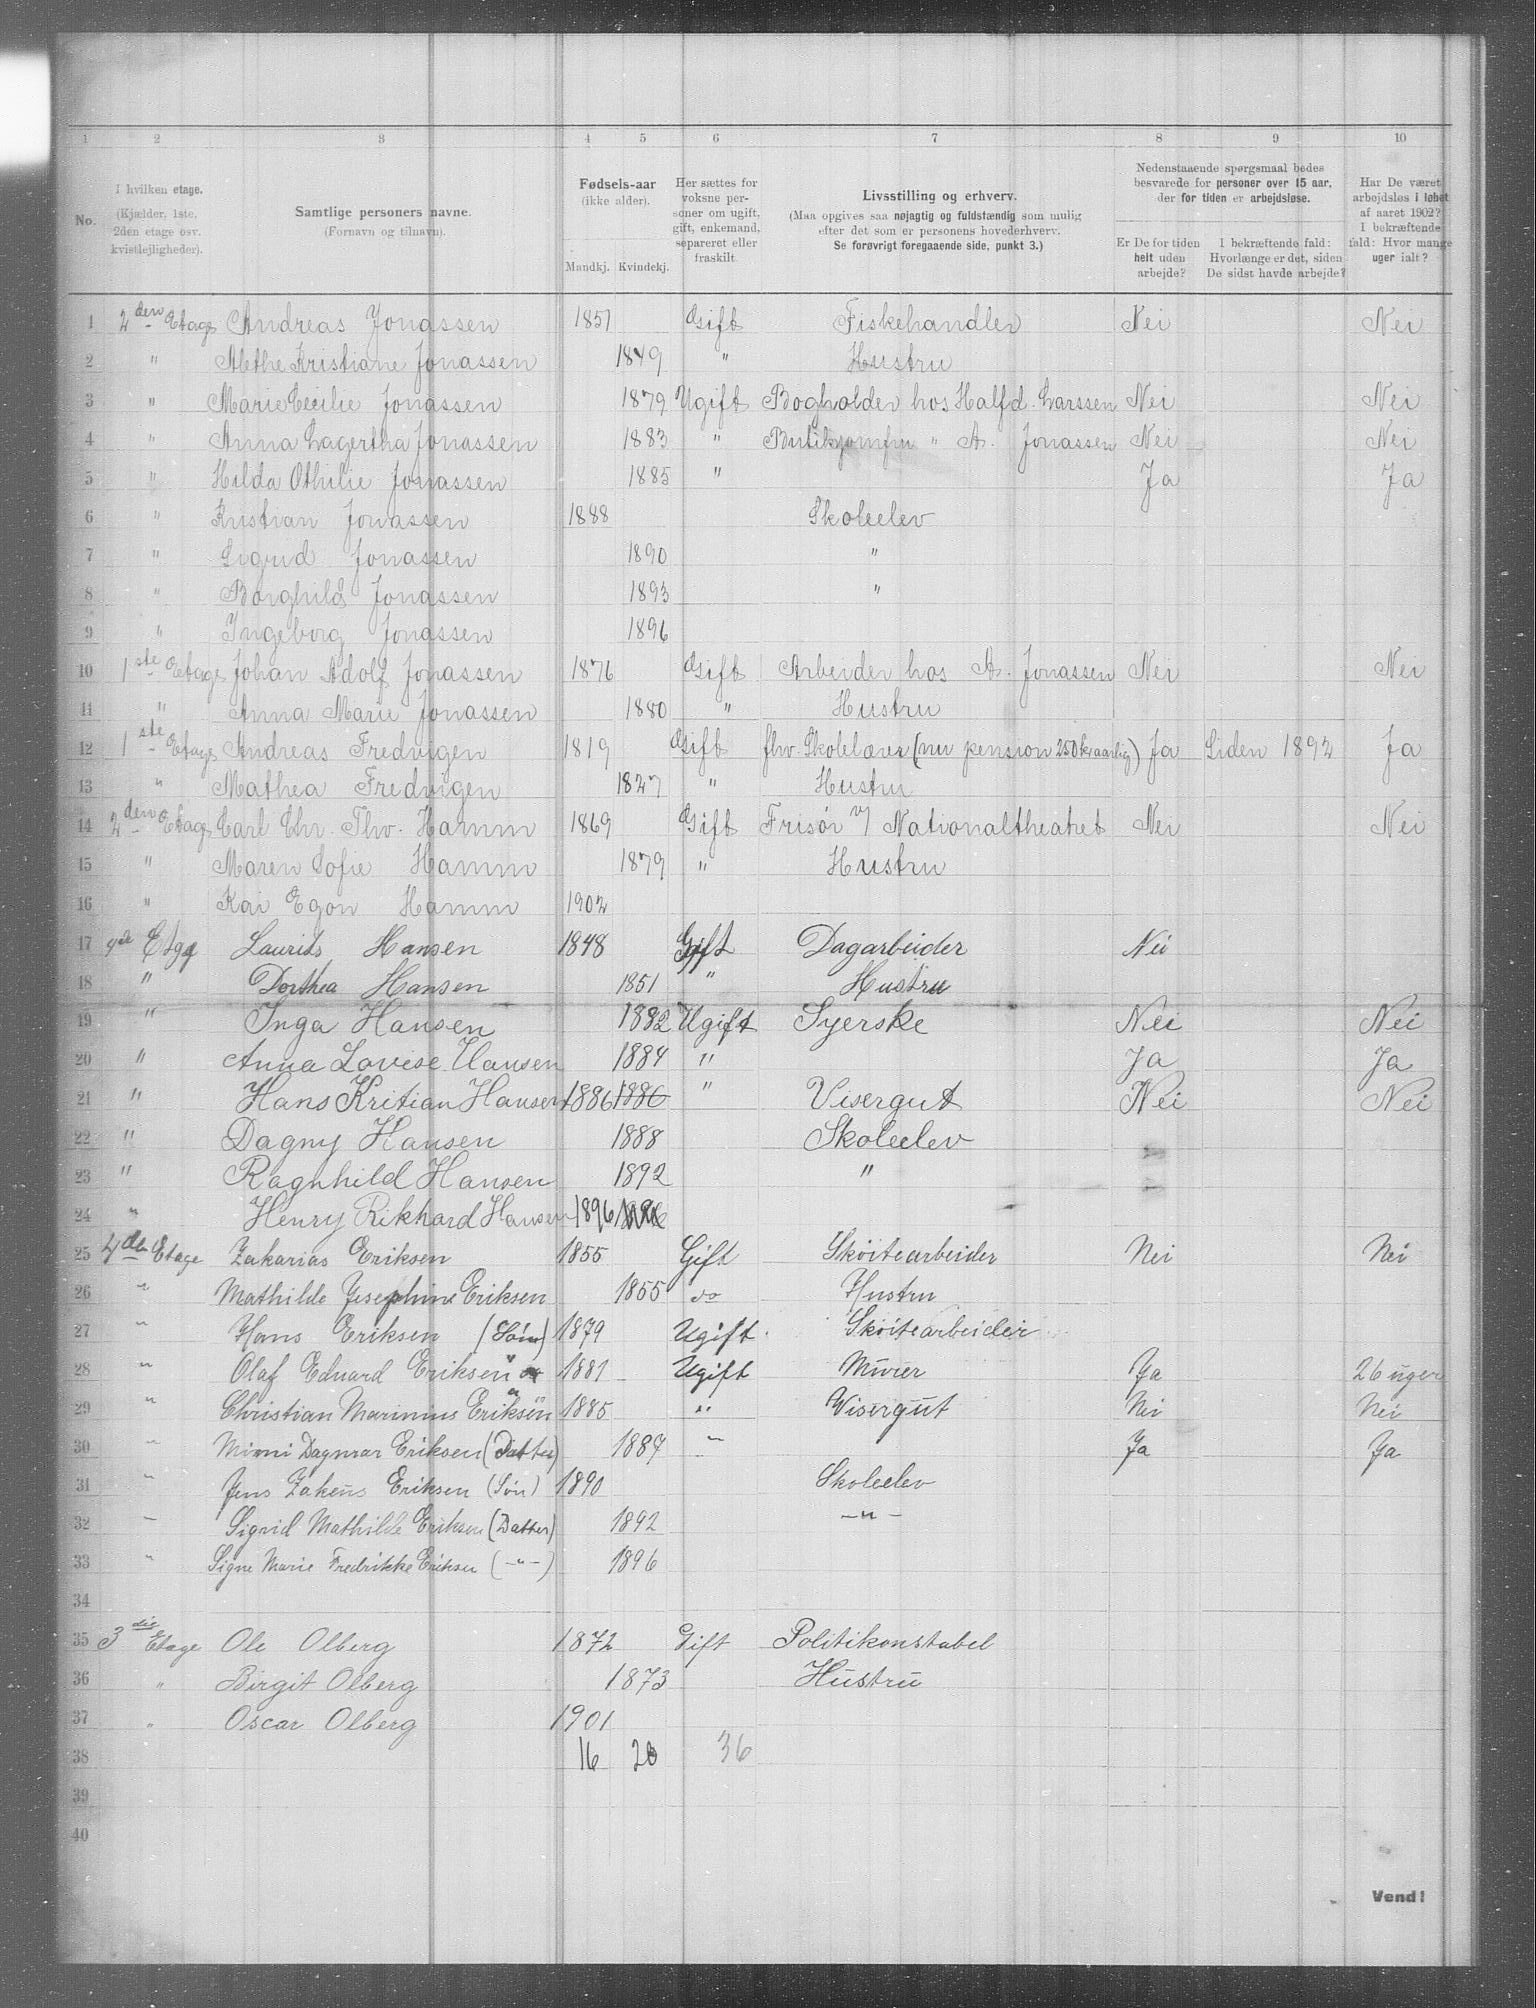 1 2 3 4 5 6 7 8 9 10
No.
I hvilken etage.
(Kjælder, 1ste,
2den etage osv.
kvistleiligheder).
Samtlige personers navne.
(Fornavn og tilnavn).
Fødsels-aar
(ikke alder).
Mandkj. Kvindekj.
Her sættes for
voksne per-
soner om ugift,
gift, enkemand,
separeret eller
fraskilt.
Livsstilling og erhverv.
(Maa opgives saa nøjagtig og fuldstændig som mulig
efter det som er personens hovederhverv.
Se forøvrigt foregaaende side, punkt 3.)
Nedenstaaende spørgsmaal bedes
besvarede for personer over 15 aar,
der for tiden er arbejdsløse.
Er De for tiden
helt uden
arbejde?
I bekræftende fald:
Hvorlænge er det, siden
De sidst havde arbejde?
Har De været
arbejdsløs i løbet
af aaret 1902?
I bekræftende
fald: Hvor mange
uger ialt?
1 2den Etage Andreas Jonassen 1851 Gift Fiskehandler Nei Nei
2 " Alethe Kristiane Jonassen 1849 " Hustru
3 " Marie Cecilie Jonassen 1879 Ugift Bogholder hos Halfd. Larssen Nei Nei
4 " Anna Lagertha Jonassen 1883 " Butikjomfru " A. Jonassen Nei Nei
5 " Hilda Othilie Jonassen 1885 " Ja Ja
6 " Kristian Jonassen 1888 Skoleelev
7 " Sigrid Jonassen 1890 "
8 " Borghild Jonassen 1893 "
9 " Ingeborg Jonassen 1896
10 1ste Etage Johan Adolf Jonassen 1876 Gift Arbeider hos A. Jonassen Nei Nei
11 " Anna Marie Jonassen 1880 " Hustru
12 1ste Etage Andreas Fredvigen 1819 Gift fhv. Skolelærer (nu pension 250 kr aarlig) Ja Siden 1892 Ja
13 " Mathea Fredvigen 1827 " Hustru
14 2den Etage Carl Chr. Thv. Hamm 1869 Gift Frisør v/ Nationaltheatret Nei Nei
15 " Maren Sofie Hamm 1879 " Hustru
16 " Kai Egon Hamm 1902
17 4de Etge Laurits Hansen 1848 Gift Dagarbeider Nei
18 " Dorthea Hansen 1851 " Hustru
19 " Inga Hansen 1882 Ugift Syerske Nei Nei
20 " Anna Lovise Hansen 1884 " Ja Ja
21 " Hans Kritian Hansen 1886 1886 " Visergut Nei Nei
22 " Dagny Hansen 1888 Skoleelev
23 " Ragnhild Hansen 1892 "
24 " Henry Rikhard Hansen 1896
25 4de Etage Zakarias Eriksen 1855 Gift Skøitearbeider Nei Nei
26 " Mathilde Josephine Eriksen 1855 do Hustru
27 " Hans Eriksen (Søn) 1879 Ugift Skøitearbeider
28 " Olaf Eduard Eriksen " 1881 Ugift Murer Ja 26 uger
29 " Christian Marinius Eriksen " 1885 " Visergut Nei Nei
30 " Mimi Dagmar Eriksen (Datter) 1887 " Ja Ja
31 " Jens Zakeus Eriksen (Søn) 1890 Skoleelev
32 " Sigrid Mathilde Eriksen (Datter) 1892 -"-
33 " Signe Marie Fredrikke Eriksen (-"-) 1896
34
35 3die Etage Ole Olberg 1872 Gift Politikonstabel
36 " Birgit Olberg 1873 Hustru
37 " Oscar Olberg 1901
38 16 20 36
39
40
Vend!